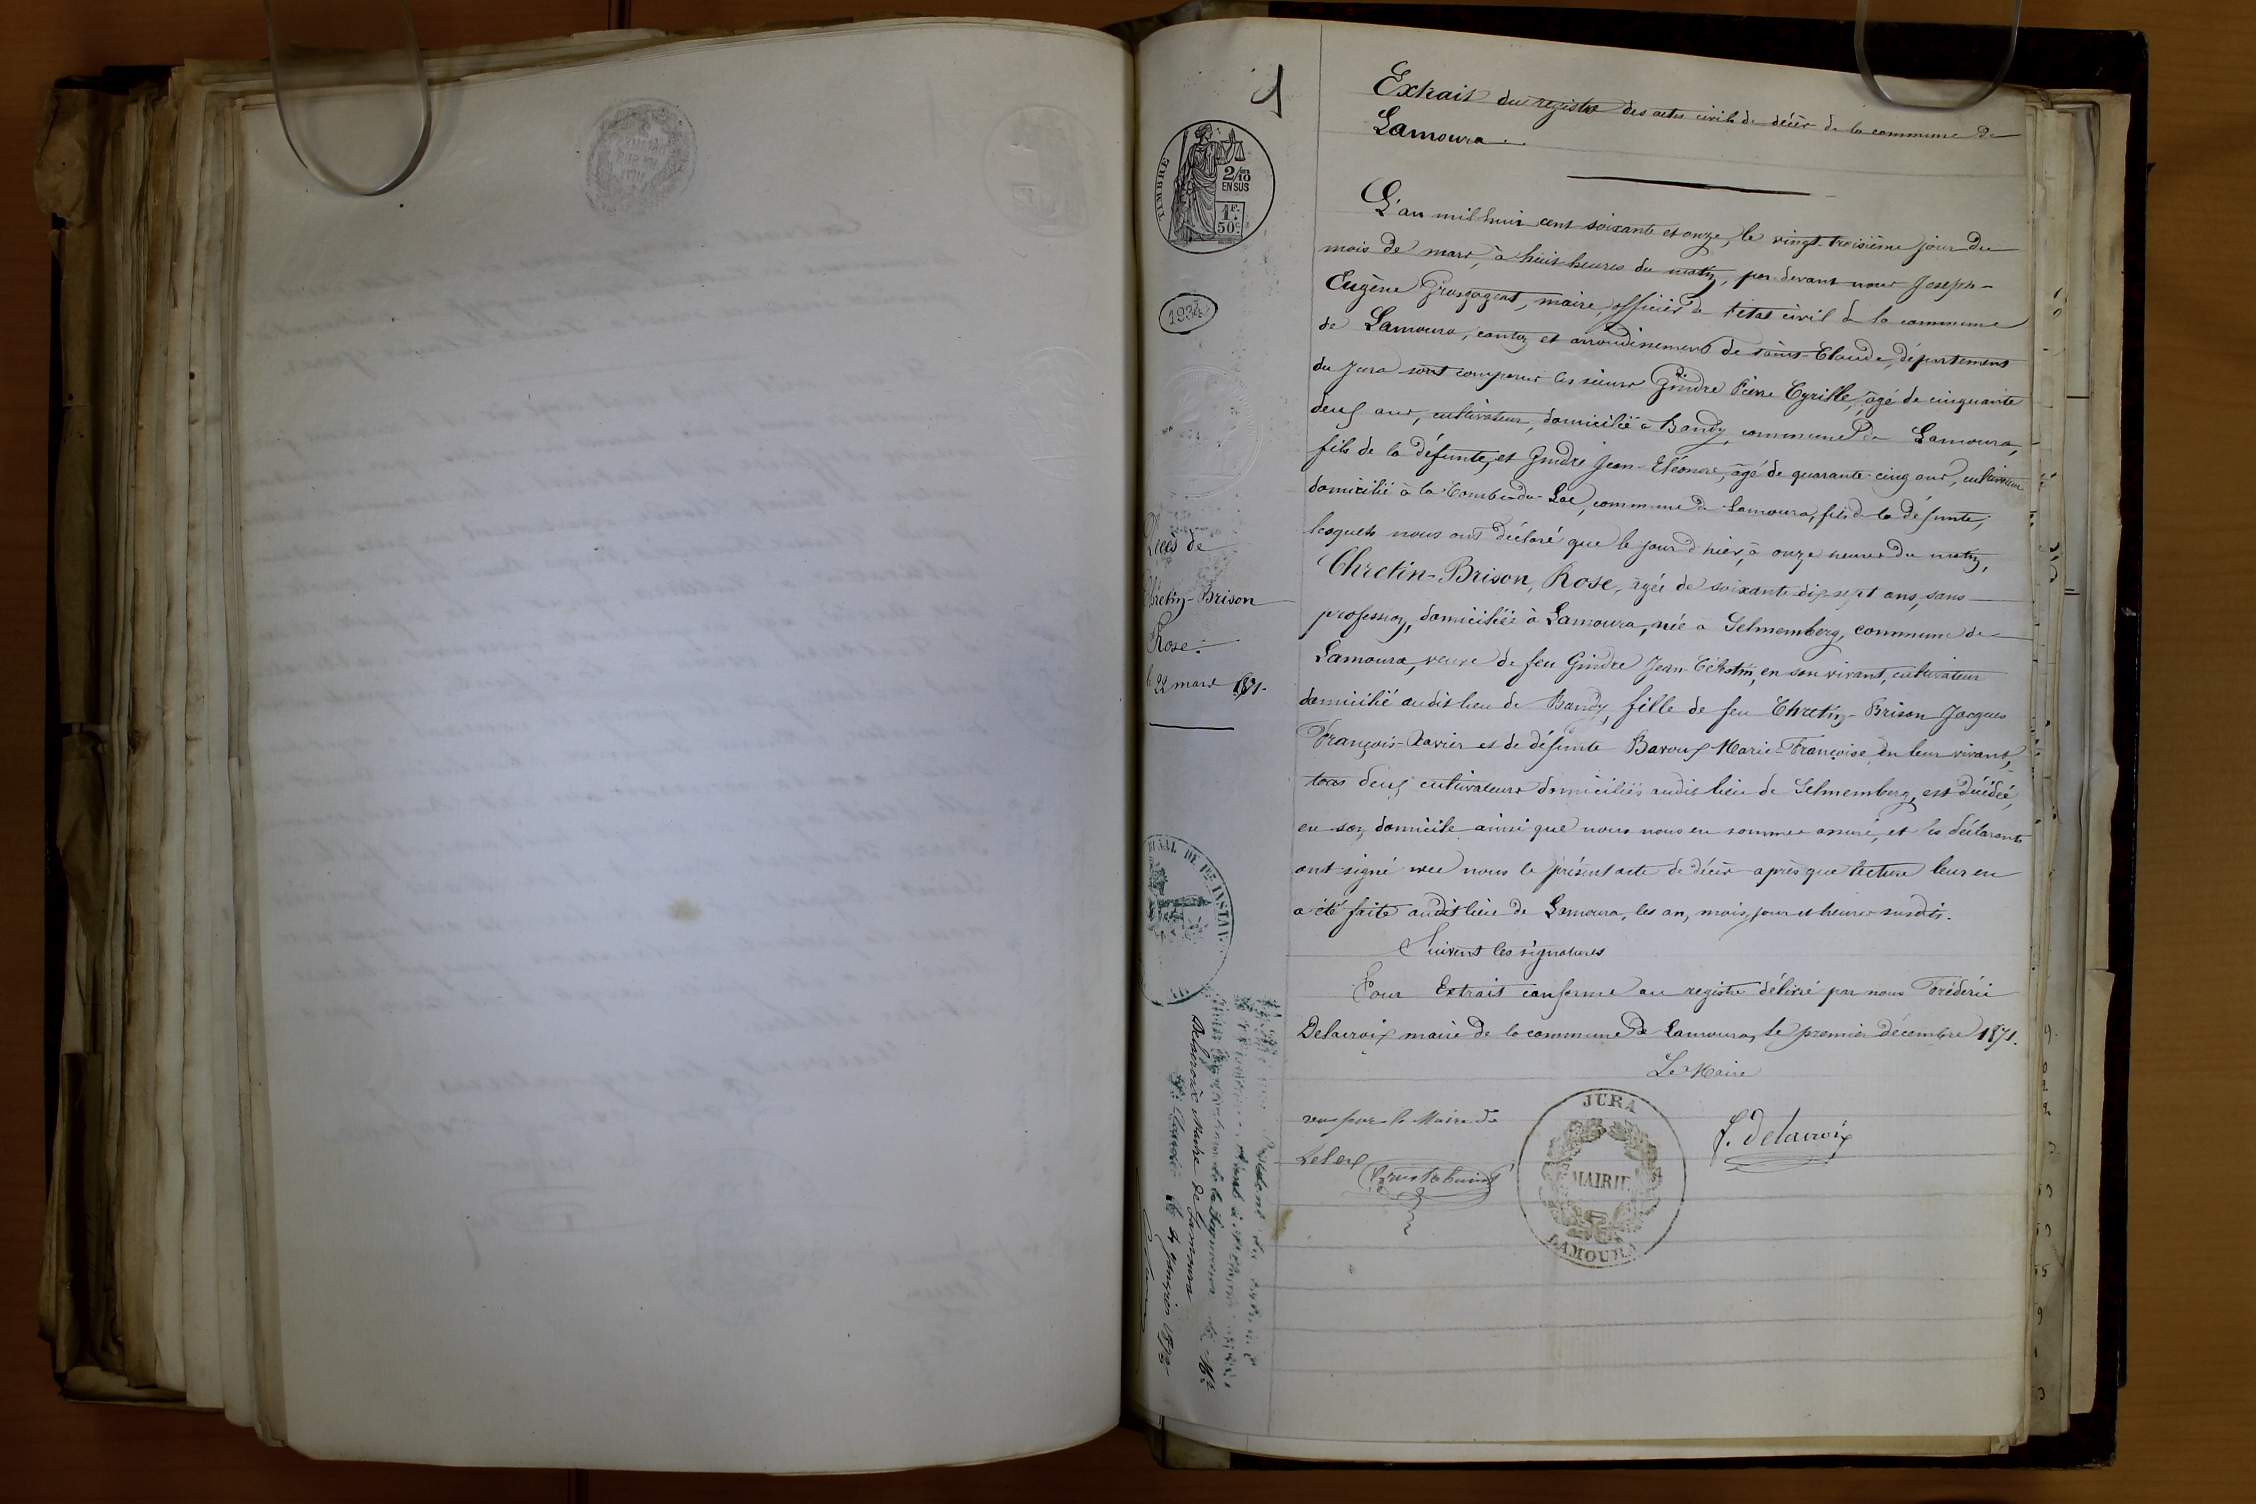 Extrait du registre des actes civils de décès de la commune de
Lamoura.
TIMBRE
2/10
EN SUS
1F.
50c.
1934
L'an mil huit cent soixante et onze, le vingt-troisième jour du
mois de mars, à huit heures du matin, par-devant nous Joseph-
Eugène Grosgogeat, maire, officier de l'état civil de la commune
de Lamoura, canton et arrondissement de saint-Claude, département
du Jura sont comparus les sieurs Gindre Pierre Cyrille, âgé de cinquante
deux ans, cultivateur, domicilié à Bandy, commune de Lamoura,
fils de la défunte, et Gindre Jean-Eléonore, âgé de quarante-cinq ans, cultivateur
domicilié à la Combe-du-Lac, commune de Lamoura, fils de la défunte,
lesquels nous ont déclaré que le jour d'hier, à onze heures du matin,
Chretin-Brison, Rose, âgée de soixante-dix-sept ans, sans
profession, domiciliée à Lamoura, née à Selmemberg, commune de
Lamoura, veuve de feu Gindre Jean-Célestin, en son vivant, cultivateur
domicilié audit lieu de Bandy, fille de feu Chretin-Brison Jacques
François-Xavier et de défunte Baroux Marie-Françoise, en leur vivant,
tous deux cultivateurs domiciliés audit lieu de Selmemberg, est décédée,
en son domicile ainsi que nous nous en sommes assuré, et les déclarants
ont signé avec nous le présent acte de décès après que lecture leur en
a été faite audit lieu de Lamoura, les an, mois, jour et heures susdits.
Suivent les signatures
Pour Extrait conforme au registre délivré par nous Frédéric
Delacroix maire de la commune de Lamoura, le premier décembre 1871.
Le Maire
F. Delacroix
vu par le Maire de
JURA
MAIRIE
LAMOURA
Décès de
Chretin-Brison
Rose.
le 22 mars 1871.
TRIBUNAL DE 1re INSTAN
de la signature de Mr
Delacroix Maire de Lamoura
St Claude le 4 janvier 1872